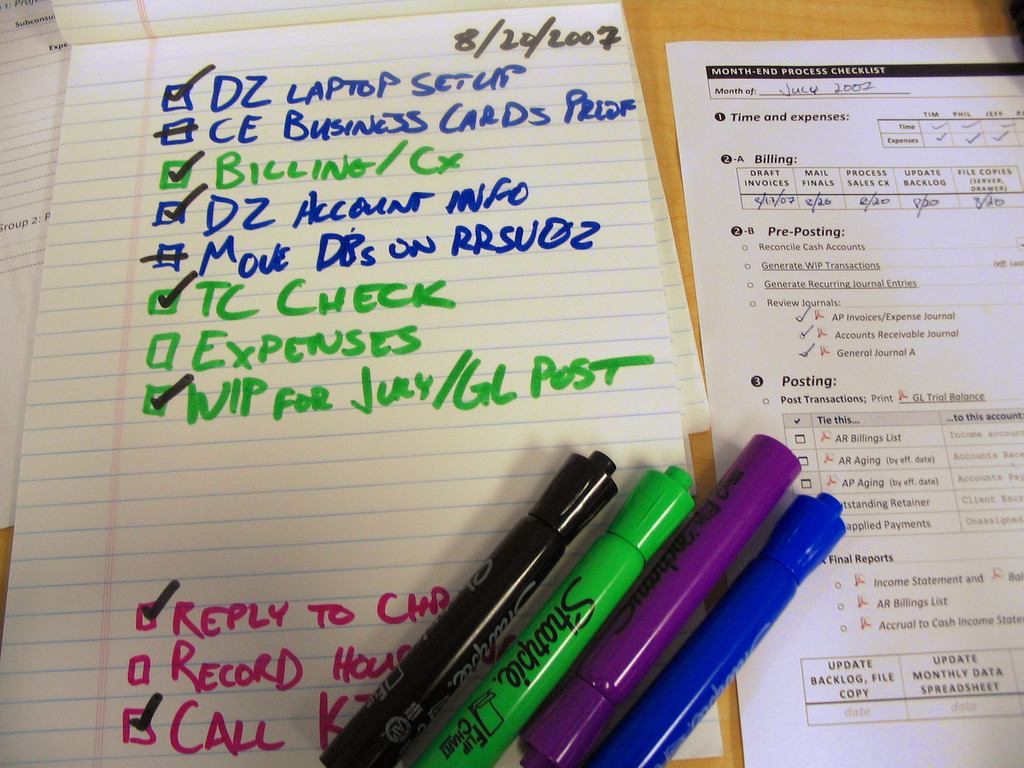 8/20/2007
DZ LAPTOP SETUP
CE BUSINESS CARDS PROOF
BILLING/CX
DZ ACCOUNT INFO
MOVE DBs ON RRSV02
TC CHECK
EXPENSES
WIP FOR JULY/GL POST
REPLY TO
RECORD
CALL
MONTH-END PROCESS CHECKLIST
Month of: JULY 2007
1 Time and expenses:
TIM PHIL JEFF
Time
Expenses
2-A Billing:
DRAFT INVOICES MAIL FINALS PROCESS SALES CX UPDATE BACKLOG FILE COPIES (SERVER, DRAWER)
8/17/07 8/20 8/20 8/20 8/20
2-B Pre-Posting:
Reconcile Cash Accounts
Generate WIP Transactions
(eff. Last
Generate Recurring Journal Entries
Review Journals:
AP Invoices/Expense Journal
Accounts Receivable Journal
General Journal A
3 Posting:
Post Transactions; Print GL Trial Balance
Tie this... ...to this account:
AR Billings List Income
AR Aging (by eff. date) Accounts
AP Aging (by eff. date) Accounts
Retainer Client
Payments
Final Reports
Income Statement and
AR Billings List
Accrual to Cash Income
UPDATE BACKLOG, FILE COPY UPDATE MONTHLY DATA SPREADSHEET
date date
Sharpie
FLIP CHART
Group 2: